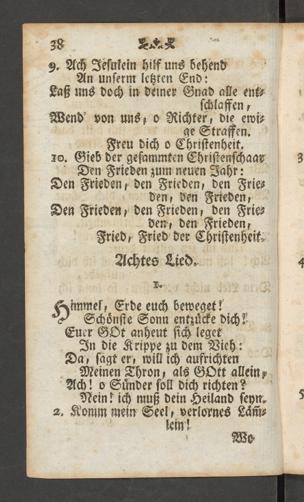 38
9. Ach Jesulein hilf uns behend
An unserm letzten End:
Laß uns doch in deiner Gnad alle ent-
schlaffen,
Wend von uns, o Richter, die ewi-
ge Straffen.
Freu dich o Christenheit.
10. Gieb der gesammten Christenschaar
Den Frieden zum neuen Jahr:
Den Frieden, den Frieden, den Frie-
den, den Frieden,
Den Frieden, den Frieden, den Frie-
den, den Frieden,
Fried, Fried der Christenheit.
Achtes Lied.
1.
Himmel, Erde euch beweget!
Schönste Sonn entzücke dich!
Euer GOtt anheut sich leget
In die Krippe zu dem Vieh:
Da, sagt er, will ich aufrichten
Meinen Thron, als GOtt allein,
Ach! o Sünder soll dich richten?
Nein! ich muß dein Heiland seyn.
2. Komm mein Seel, verlornes Läm̃-
lein!
We